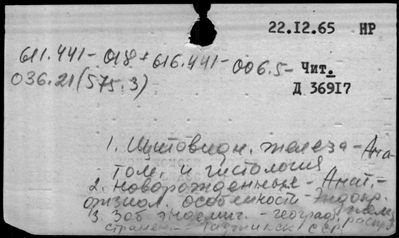 22.IZ.65 НР
611.441-018+616.441-006.5-
Чит.
036.21(575.3)
Д 36917
1. Щитовидн. железа - Ана-
том. и гистология
2. Новорожденные - Анат.-
физиол. особенности - Эндокр.
3. Зоб эндемич. - географ. распр
стран. - Таджикск ССР